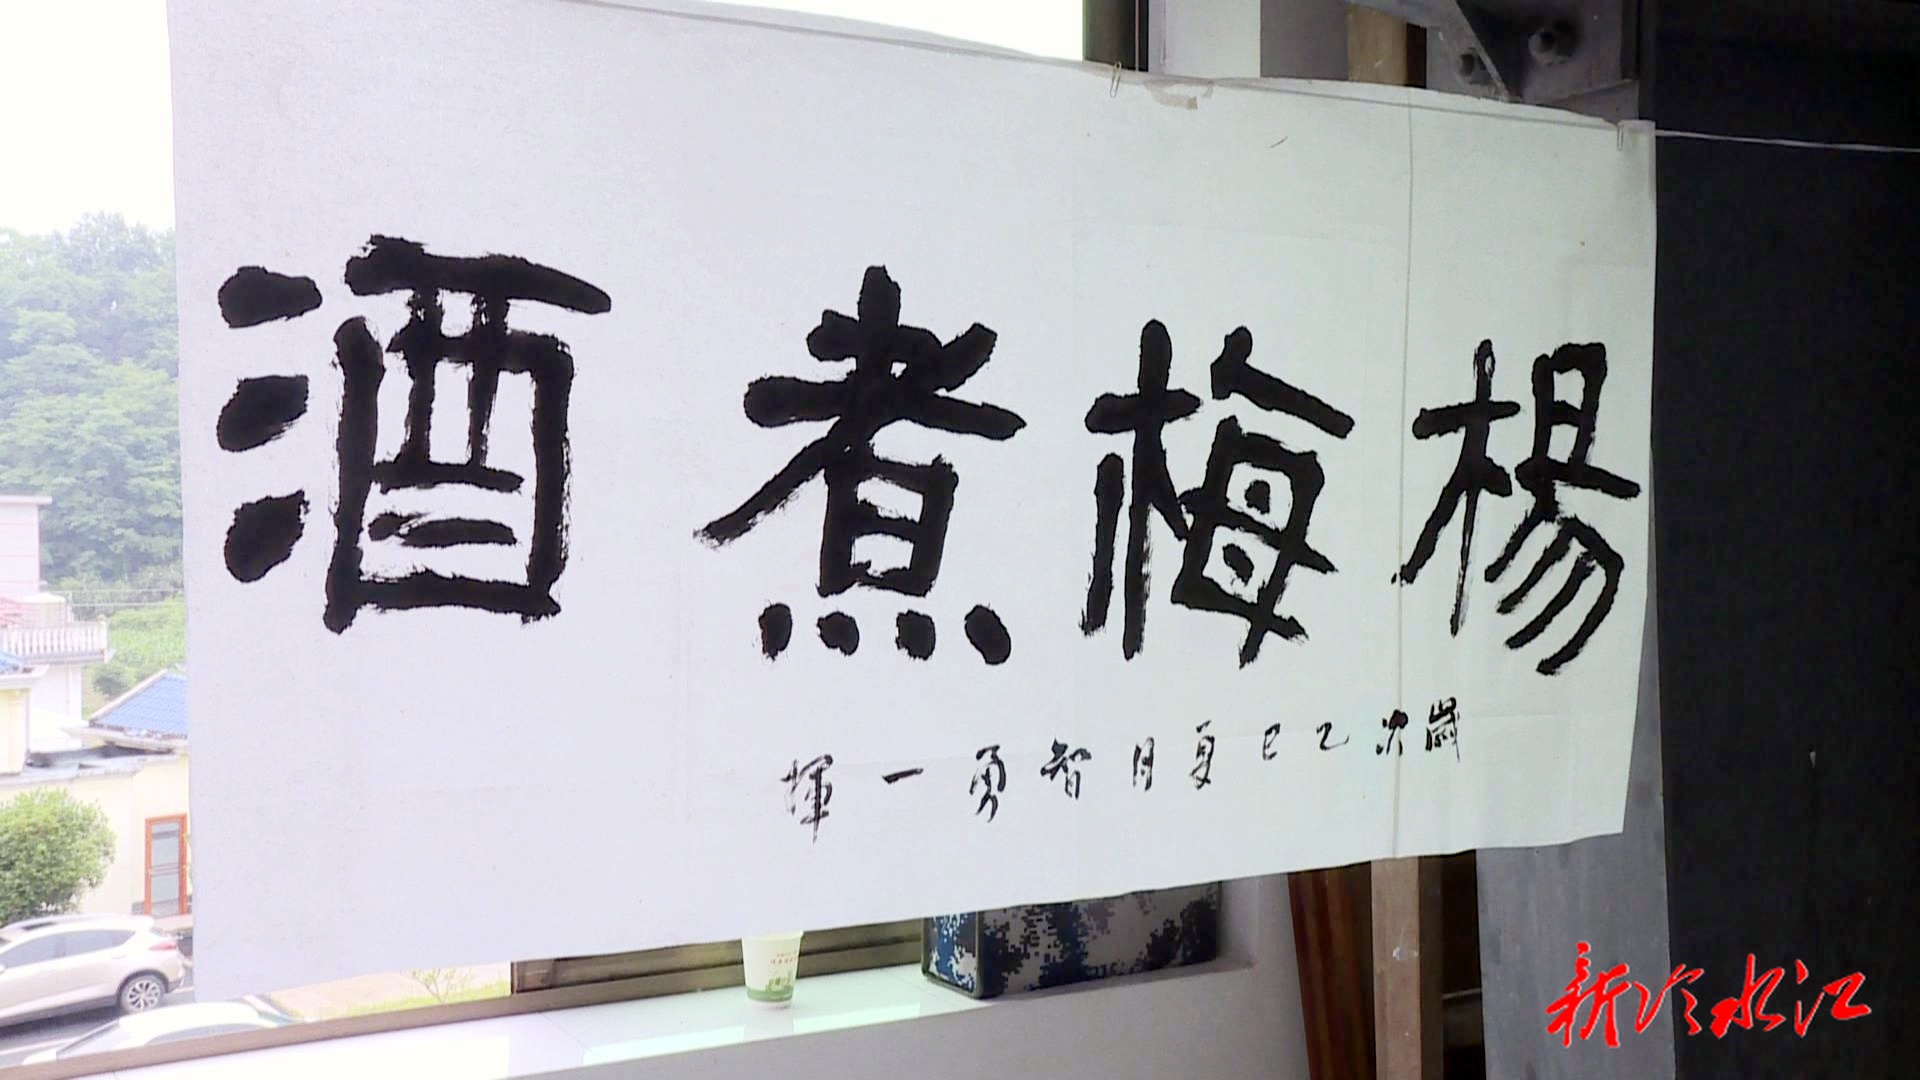 楊梅煮酒
歲次乙巳夏月智勇一揮
新冷水江